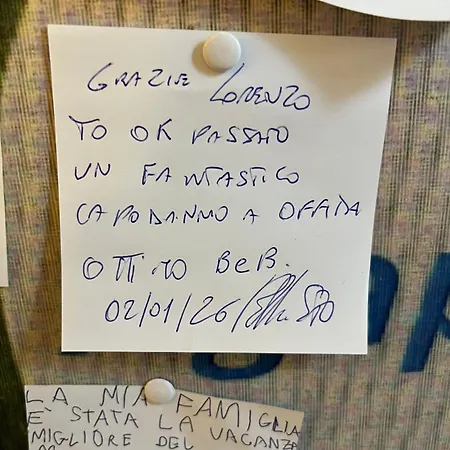 GRAZIE LORENZO
TO OK PASSATO
UN FANTASTICO
CAPODANNO A OFFIDA
OTTIMO BeB.
02/01/26
LA MIA FAMIGLIA
È STATA LA
MIGLIORE DEL VACANZA